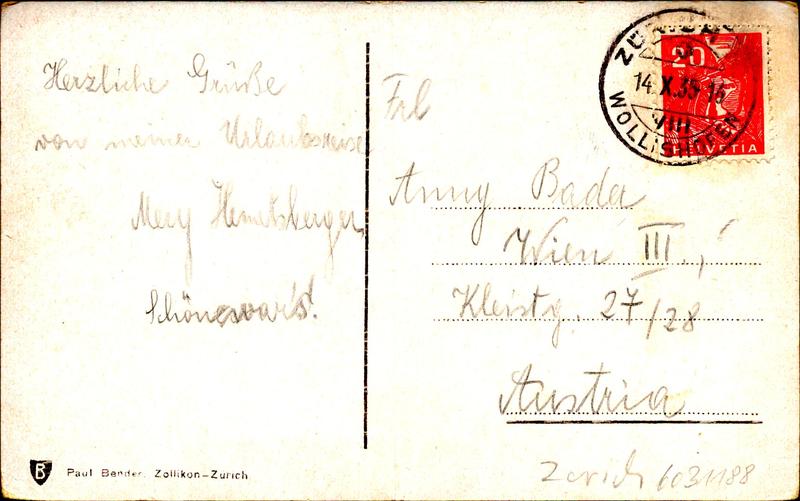 Herzliche Grüße
von meiner Urlaubsreise
Mery Hemetsberger
Schön war's!
Frl
Anny Bada
Wien III.,
Kleistg. 27/28
Austria
ZÜRICH
14.X.35-16
VIII
WOLLISHOFEN
20
HELVETIA
B
Paul Bender, Zollikon-Zürich
Zürich 6031188